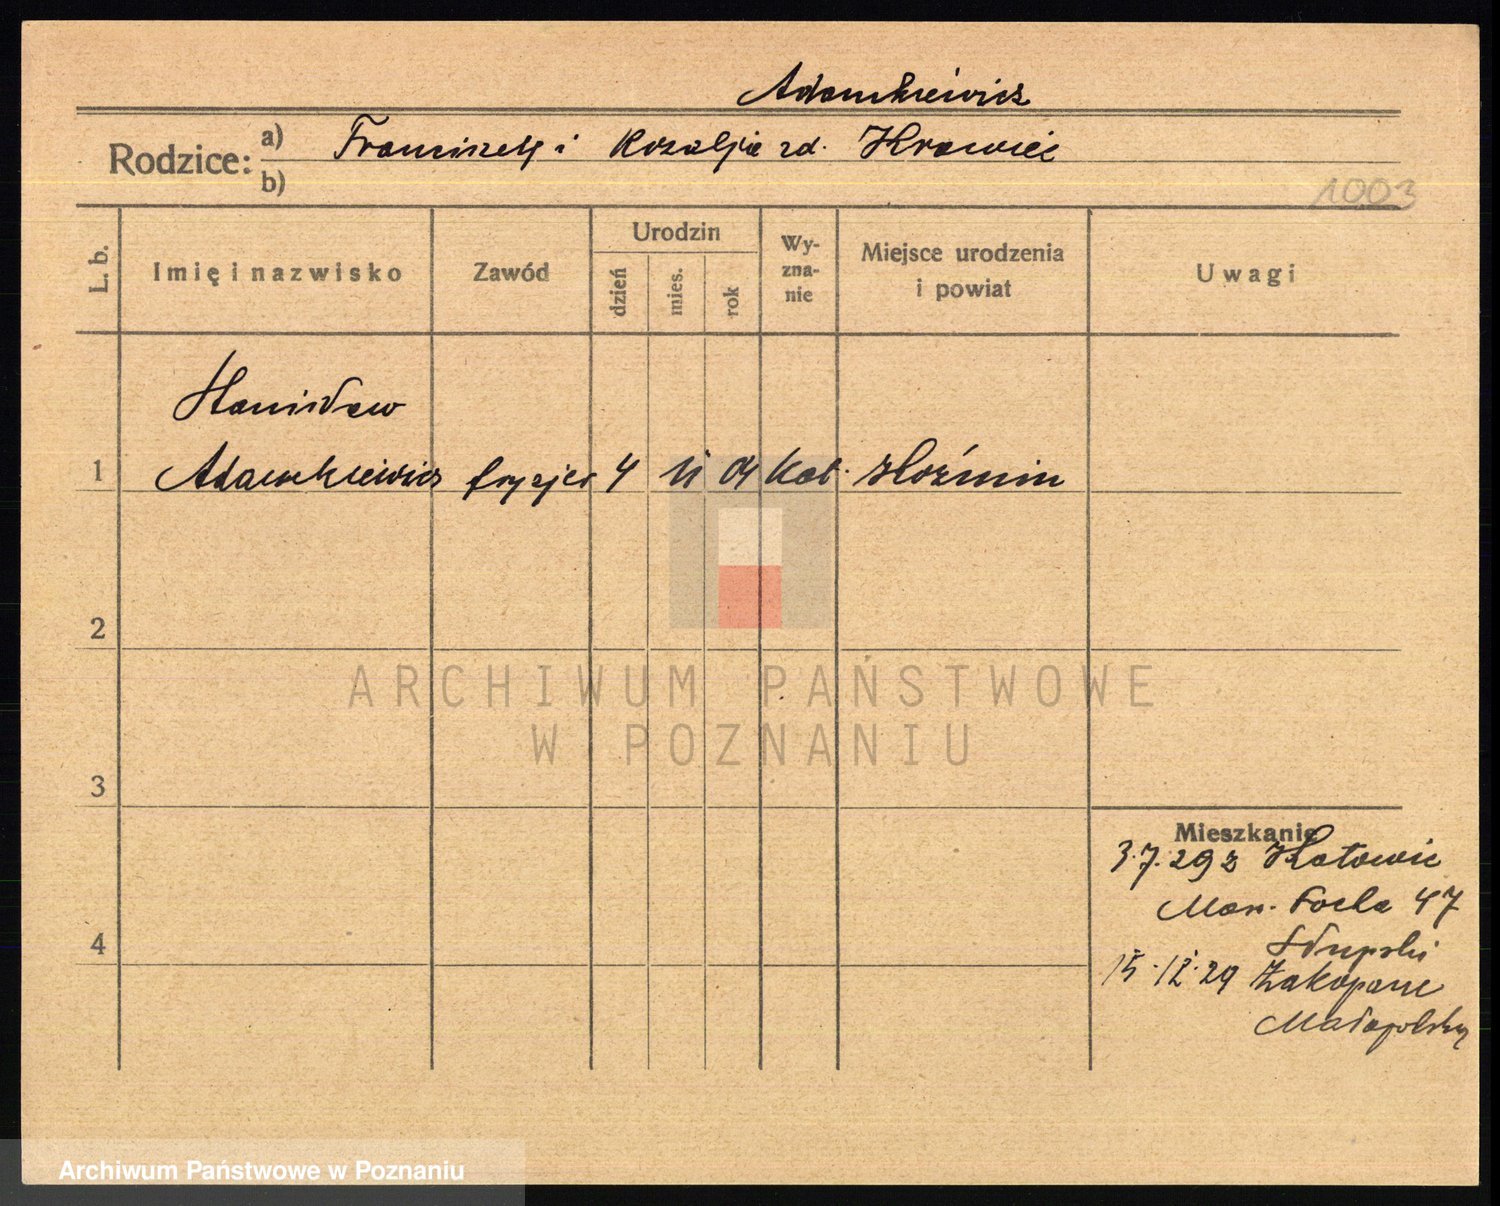 Adamkiewicz
Rodzice: a) Franciszek i Rozalja zd. Krawiec
b)
1003
L. b. Imię i nazwisko Zawód Urodzin dzień mies. rok Wyznanie Miejsce urodzenia i powiat Uwagi
Stanisław
1 Adamkiewicz fryzjer 4 11 04 kat. Koźmin
2
ARCHIWUM PAŃSTWOWE
W POZNANIU
3
Mieszkanie
3.7.29 z Katowic
Mar. Focha 47
Słupski
4
15.12.29 Zakopane
Małopolska
Archiwum Państwowe w Poznaniu